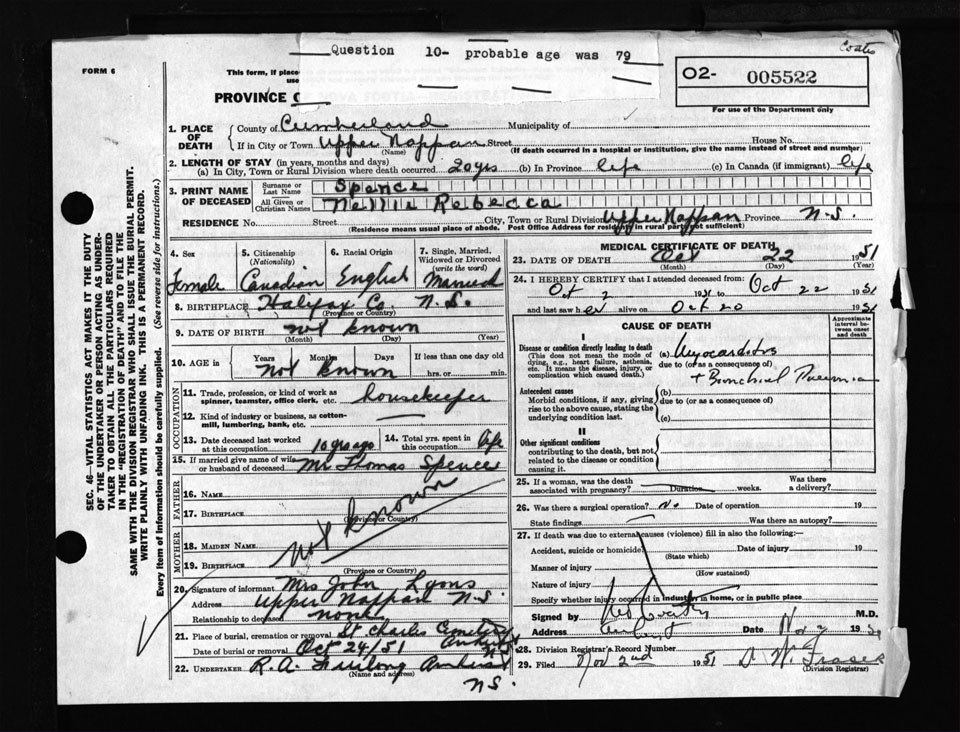 Question 10- probable age was 79
Coates
FORM 6
This form, if place
use
PROVINCE O
O2- 005522
For use of the Department only
1. PLACE OF DEATH
County of Cumberland Municipality of
If in City or Town Upper Nappan Street House No.
(Name) (If death occurred in a hospital or institution, give the name instead of street and number)
2. LENGTH OF STAY (in years, months and days)
(a) In City, Town or Rural Division where death occurred 20 yrs (b) In Province life (c) In Canada (if immigrant) life
3. PRINT NAME OF DECEASED
Surname or Last Name Spence
All Given or Christian Names Nellie Rebecca
RESIDENCE No. Street City, Town or Rural Division Upper Nappan Province N.S.
(Residence means usual place of abode. Post Office Address for residents in rural parts not sufficient)
4. Sex
Female
5. Citizenship (Nationality)
Canadian
6. Racial Origin
English
7. Single, Married, Widowed or Divorced (write the word)
Married
8. BIRTHPLACE Halifax Co. N.S.
(Province or Country)
9. DATE OF BIRTH not known
(Month) (Day) (Year)
10. AGE in Years Months Days If less than one day old
not known hrs. or min.
OCCUPATION
11. Trade, profession, or kind of work as spinner, teamster, office clerk, etc. housekeeper
12. Kind of industry or business, as cotton-mill, lumbering, bank, etc.
13. Date deceased last worked at this occupation 10 yrs ago
14. Total yrs. spent in this occupation life
15. If married give name of wife or husband of deceased Mr Thomas Spence
FATHER
16. NAME
17. BIRTHPLACE
(Province or Country)
not known
MOTHER
18. MAIDEN NAME
19. BIRTHPLACE
(Province or Country)
20. Signature of informant Mrs John Lyons
Address Upper Nappan N.S.
Relationship to deceased none
21. Place of burial, cremation or removal St Charles Cemetery Amherst N.S.
Date of burial or removal Oct 24/51
22. UNDERTAKER R.A. Furlong Amherst
(Name and address)
N.S.
MEDICAL CERTIFICATE OF DEATH
23. DATE OF DEATH Oct 22 1951
(Month) (Day) (Year)
24. I HEREBY CERTIFY that I attended deceased from:
Oct 2 1951 to Oct 22 1951
and last saw her alive on Oct 20 1951
CAUSE OF DEATH
Approximate interval between onset and death
I
Disease or condition directly leading to death
(This does not mean the mode of dying, e.g., heart failure, asthenia, etc. It means the disease, injury, or complication which caused death.)
(a) Myocarditis
due to (or as a consequence of)
+ Bronchial Pneumonia
Antecedent causes
Morbid conditions, if any, giving rise to the above cause, stating the underlying condition last.
(b)
due to (or as a consequence of)
(c)
II
Other significant conditions
contributing to the death, but not related to the disease or condition causing it.
25. If a woman, was the death associated with pregnancy? Duration weeks. Was there a delivery?
26. Was there a surgical operation? No Date of operation 19
State findings Was there an autopsy?
27. If death was due to external causes (violence) fill in also the following:—
Accident, suicide or homicide Date of injury 19
(State which)
Manner of injury
(How sustained)
Nature of injury
Specify whether injury occurred in industry, in home, or in public place
Signed by M.D.
Address Amherst Date Nov 2 19
28. Division Registrar's Record Number
29. Filed Nov 2nd 1951 D. W. Fraser
(Division Registrar)
SEC. 46—VITAL STATISTICS ACT MAKES IT THE DUTY
OF THE UNDERTAKER OR PERSON ACTING AS UNDER-
TAKER TO OBTAIN ALL THE PARTICULARS REQUIRED
IN THE "REGISTRATION OF DEATH" AND TO FILE THE
SAME WITH THE DIVISION REGISTRAR WHO SHALL ISSUE THE BURIAL PERMIT.
WRITE PLAINLY WITH UNFADING INK. THIS IS A PERMANENT RECORD.
Every item of Information should be carefully supplied. (See reverse side for instructions.)